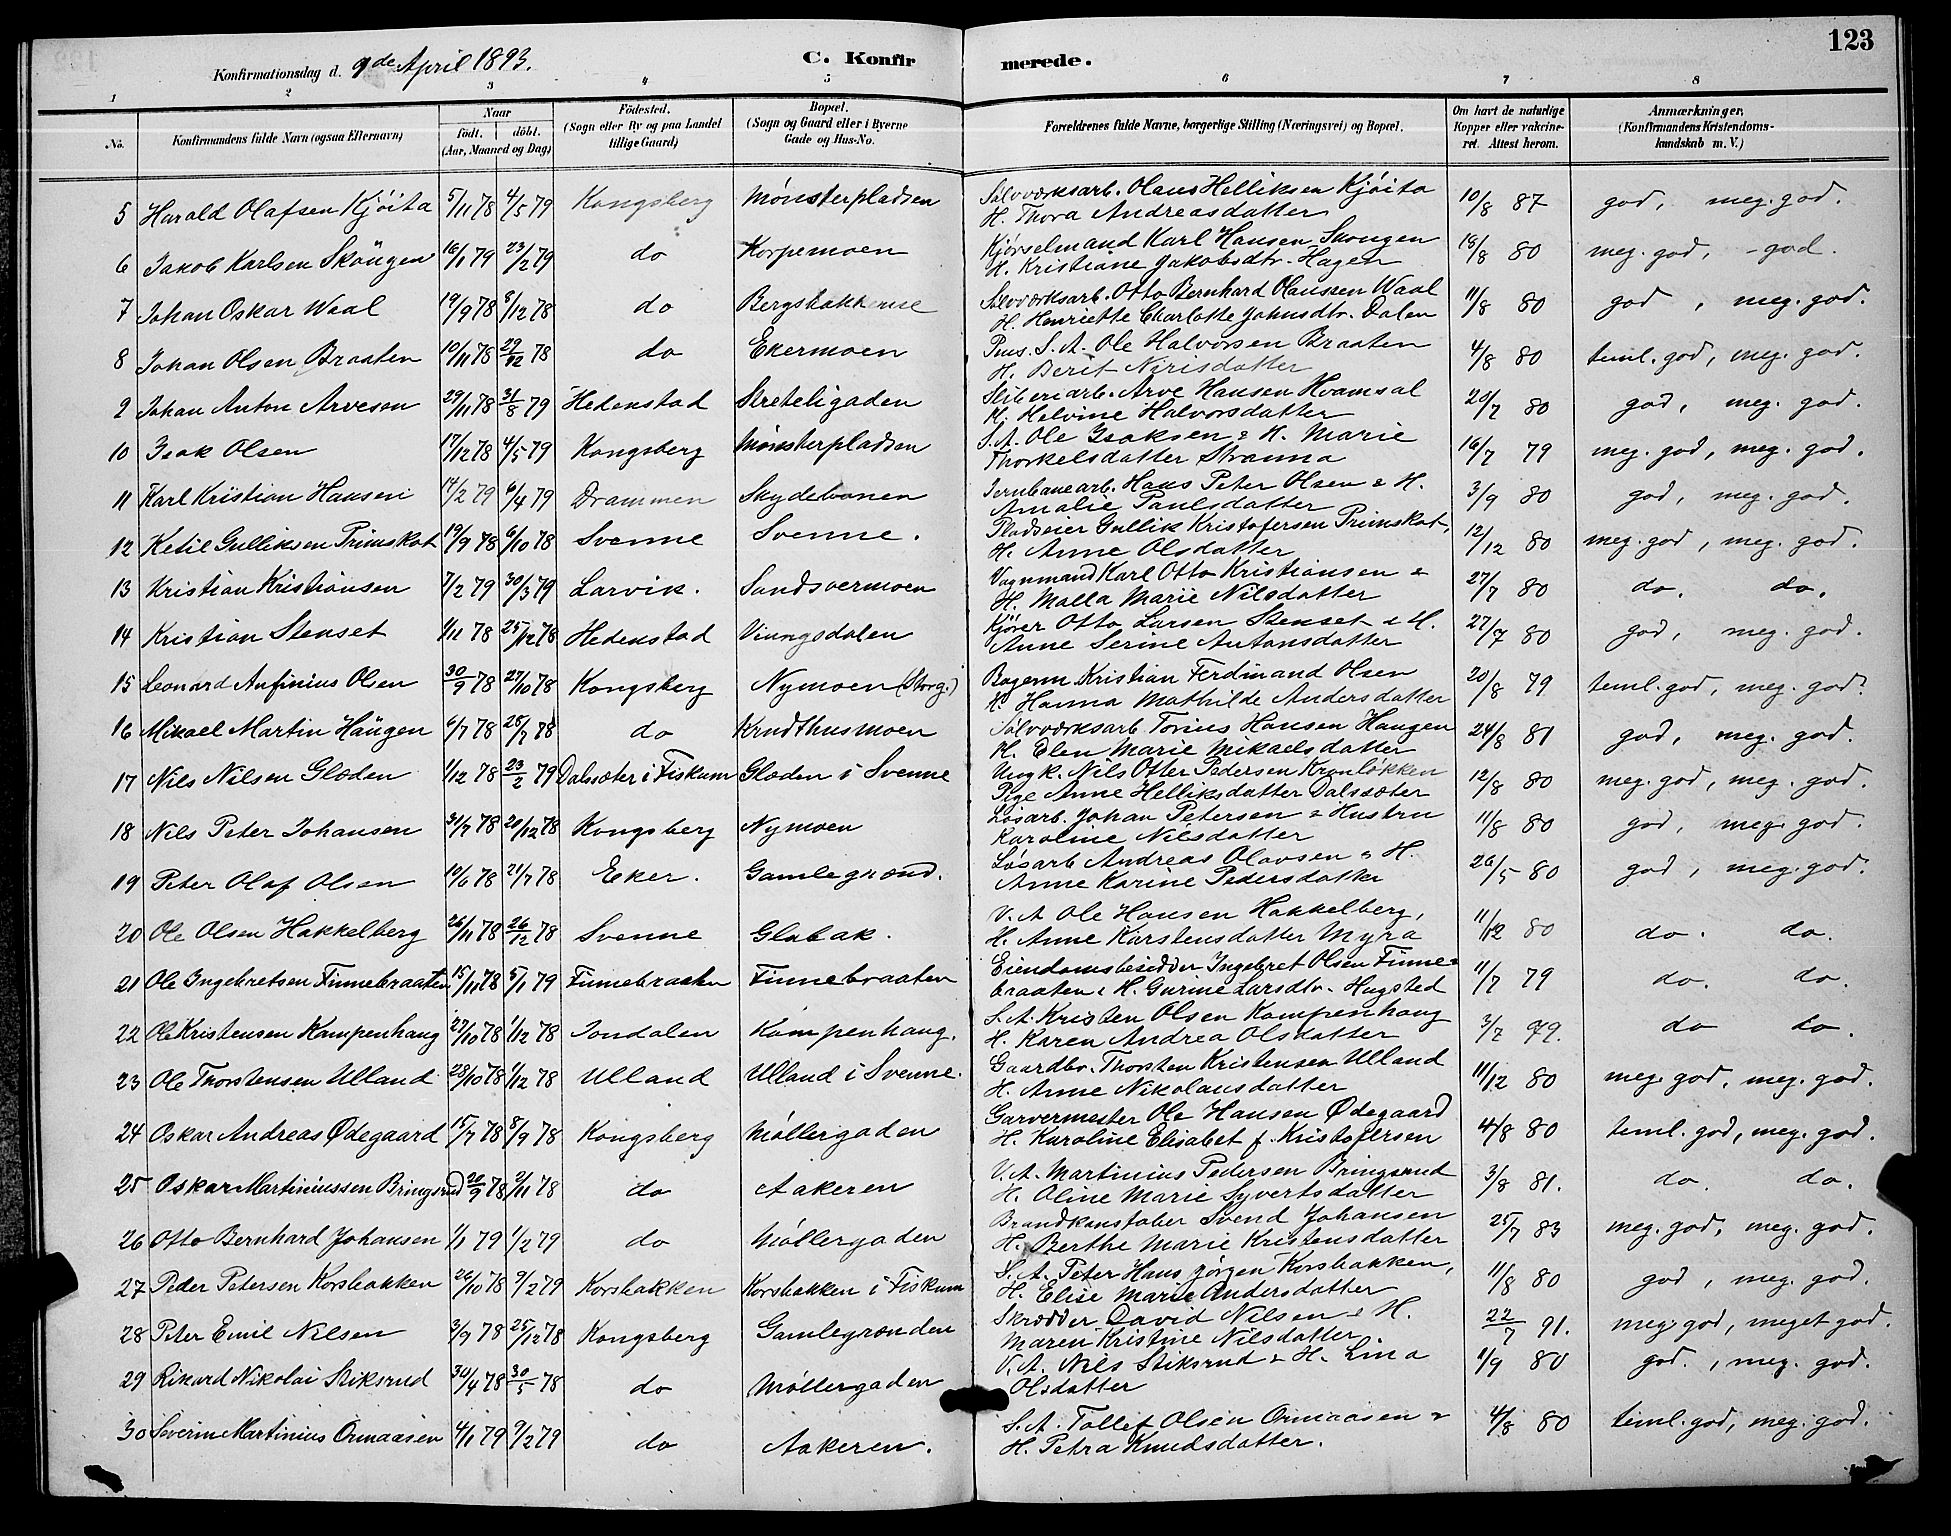 123
Konfirmationsdag d. 9de April 1893.
C. Konfirmerede.
1 2 3 4 5 6 7 8
No. Konfirmandens fulde Navn (ogsaa Efternavn) Naar födt. döbt. (Aar, Maaned og Dag) Födested. (Sogn eller By og paa Landet tillige Gaard) Bopæl. (Sogn og Gaard eller i Byerne Gade og Hus-No. Forældrenes fulde Navne, borgerlige Stilling (Næringsvei) og Bopæl. Om havt de naturlige Kopper eller vakcineret. Attest herom. Anmærkninger, (Konfirmandens Kristendomskundskab m. V.)
5 Harald Olafsen Kjöita 5/11 78 4/5 79 Kongsberg Mønsterpladsen Sølvværksarb. Olaus Helliksen Kjöita H. Thora Andreasdatter 10/8 87 god, meg. god.
6 Jakob Karlsen Skougen 16/1 79 23/2 79 do Korpemoen Kjørselmand Karl Hansen Skougen H. Kristiane Jakobsdtr. Hagen 18/8 80 meg. god, god.
7 Johan Oskar Waal 19/9 78 8/12 78 do Bergsbakkerne Sølvværksarb. Otto Bernhard Olaussen Waal H. Henriette Charlotte Johnsdtr. Dalen 11/8 80 god, meg. god.
8 Johan Olsen Braaten 10/11 78 29/12 78 do Ekermoen Pens. S. A. Ole Halvorsen Braaten H. Berit Nirisdatter 4/8 80 teml. god, meg. god.
9 Johan Anton Arvesen 29/11 78 31/8 79 Hedenstad Streteligaden Sliberiarb. Arve Hansen Hvamsal H. Helvine Halvorsdatter 20/7 80 god, meg. god.
10 Isak Olsen 17/12 78 4/5 79 Kongsberg Mønsterpladsen S. A. Ole Isaksen & H. Marie Thorkelsdatter Stranna 16/7 79 meg. god, meg. god.
11 Karl Kristian Hansen 14/2 79 6/4 79 Drammen Skydebanen Jernbanearb. Hans Peter Olsen & H. Amalie Paulsdatter 3/9 80 god, meg. god.
12 Ketil Gulliksen Primskot 19/9 78 6/10 78 Svenne Svenne. Pladseier Gullik Kristofersen Primskot, H. Anne Olsdatter 12/12 80 meg. god, meg. god.
13 Kristian Kristiansen 7/2 79 30/3 79 Larvik. Sandsværmoen Vognmand Karl Otto Kristiansen & H. Malla Marie Nilsdatter 27/7 80 do. do.
14 Kristian Stenset 1/11 78 25/12 78 Hedenstad Vinngsdalen Kjører Otto Larsen Stenset & H. Anne Serine Antonsdatter 27/7 80 god, meg. god.
15 Leonard Anfinius Olsen 30/9 78 27/10 78 Kongsberg Nymoen (Storg.) Kristian Ferdinand Olsen H. Hanna Mathilde Andersdatter 20/8 79 teml. god, meg. god.
16 Mikael Martin Haugen 6/7 78 28/7 78 do Krudthusmoen Sølvværksarb. Tonius Hansen Haugen H. Elen Marie Mikaelsdatter 24/8 81 god, meg. god.
17 Nils Nilsen Glæden 1/12 78 23/2 79 Dalssæter i Fiskum Glæden i Svenne Ungk. Nils Otter Pedersen Kronløkken Pige Anne Helliksdatter Dalsæter 12/8 80 meg. god, meg. god.
18 Nils Peter Johansen 31/7 78 20/12 78 Kongsberg Nymoen Løsarb. Johan Petersen & Hustru Karoline Nilsdatter 11/8 80 god, meg. god.
19 Peter Olaf Olsen 10/6 78 21/7 78 Eker. Gamlegrænd. Løsarb Andreas Olavsen & H. Anne Karine Pedersdatter 26/5 80 god, meg. god.
20 Ole Olsen Hakkelberg 26/11 78 26/12 78 Svenne Glabak. V. A Ole Hansen Hakkelberg, H. Anne Karstensdatter Myra 11/12 80 do. do.
21 Ole Ingebretsen Finnebraaten 15/11 78 5/1 79 Finnebraaten Finnebraaten Eiendomsbesidder Ingebret Olsen Finnebraaten & H. Gurine Larsdtr. Hugsted 11/7 79 do. do.
22 Ole Kristensen Kampenhaug 27/10 78 1/12 78 Jondalen Kampenhaug. S. A. Kristen Olsen Kampenhaug H. Karen Andrea Olsdatter 3/7 79. do do.
23 Ole Thorstensen Ulland 28/10 78 1/12 78 Ulland Ulland i Svenne. Gaardbr. Thorsten Kristensen Ulland H. Anne Nikolausdatter 11/12 80 meg. god, meg. god.
24 Oskar Andreas Ødegaard 15/7 78 8/9 78 Kongsberg Møllergaden Garvermester Ole Hansen Ødegaard H. Karoline Elisabet f. Kristofersen 4/8 80 teml. god, meg. god.
25 Oskar Martiniussen Bringsrud 20/9 78 2/11 78 do Aakeren V. A. Martinius Pedersen Bringsrud H. Oline Marie Syvertsdatter 3/8 81. do. do.
26 Otto Bernhard Johansen 1/1 79 1/2 79 do Møllergaden Brandkonstabel Svend Johansen H. Berthe Marie Kristensdatter 25/7 83 meg. god, meg. god.
27 Peder Petersen Korsbakken 26/10 78 9/2 79 Korsbakken Korsbakken i Fiskum S. A. Peter Hans Jörgen Korsbakken, H. Elise Marie Andersdatter 11/8 80 god, meg. god.
28 Peter Emil Nilsen 3/9 78 25/12 78 Kongsberg Gamlegrænden Skrædder David Nilsen & H. Maren Kristine Nilsdatter. 22/7 91. meg. god, meget god.
29 Rikard Nikolai Stiksrud 30/4 78 30/5 78 do Møllergaden V. A. Nils Stiksrud & H. Lina Olsdatter 11/9 80 god., meg. god.
30 Severin Martinius Ormaasen 4/1 79 9/2 79 do Aakeren. S. A. Tollef Olsen Ormaasen & H. Petra Knudsdatter. 4/8 80 teml. god, meg. god.